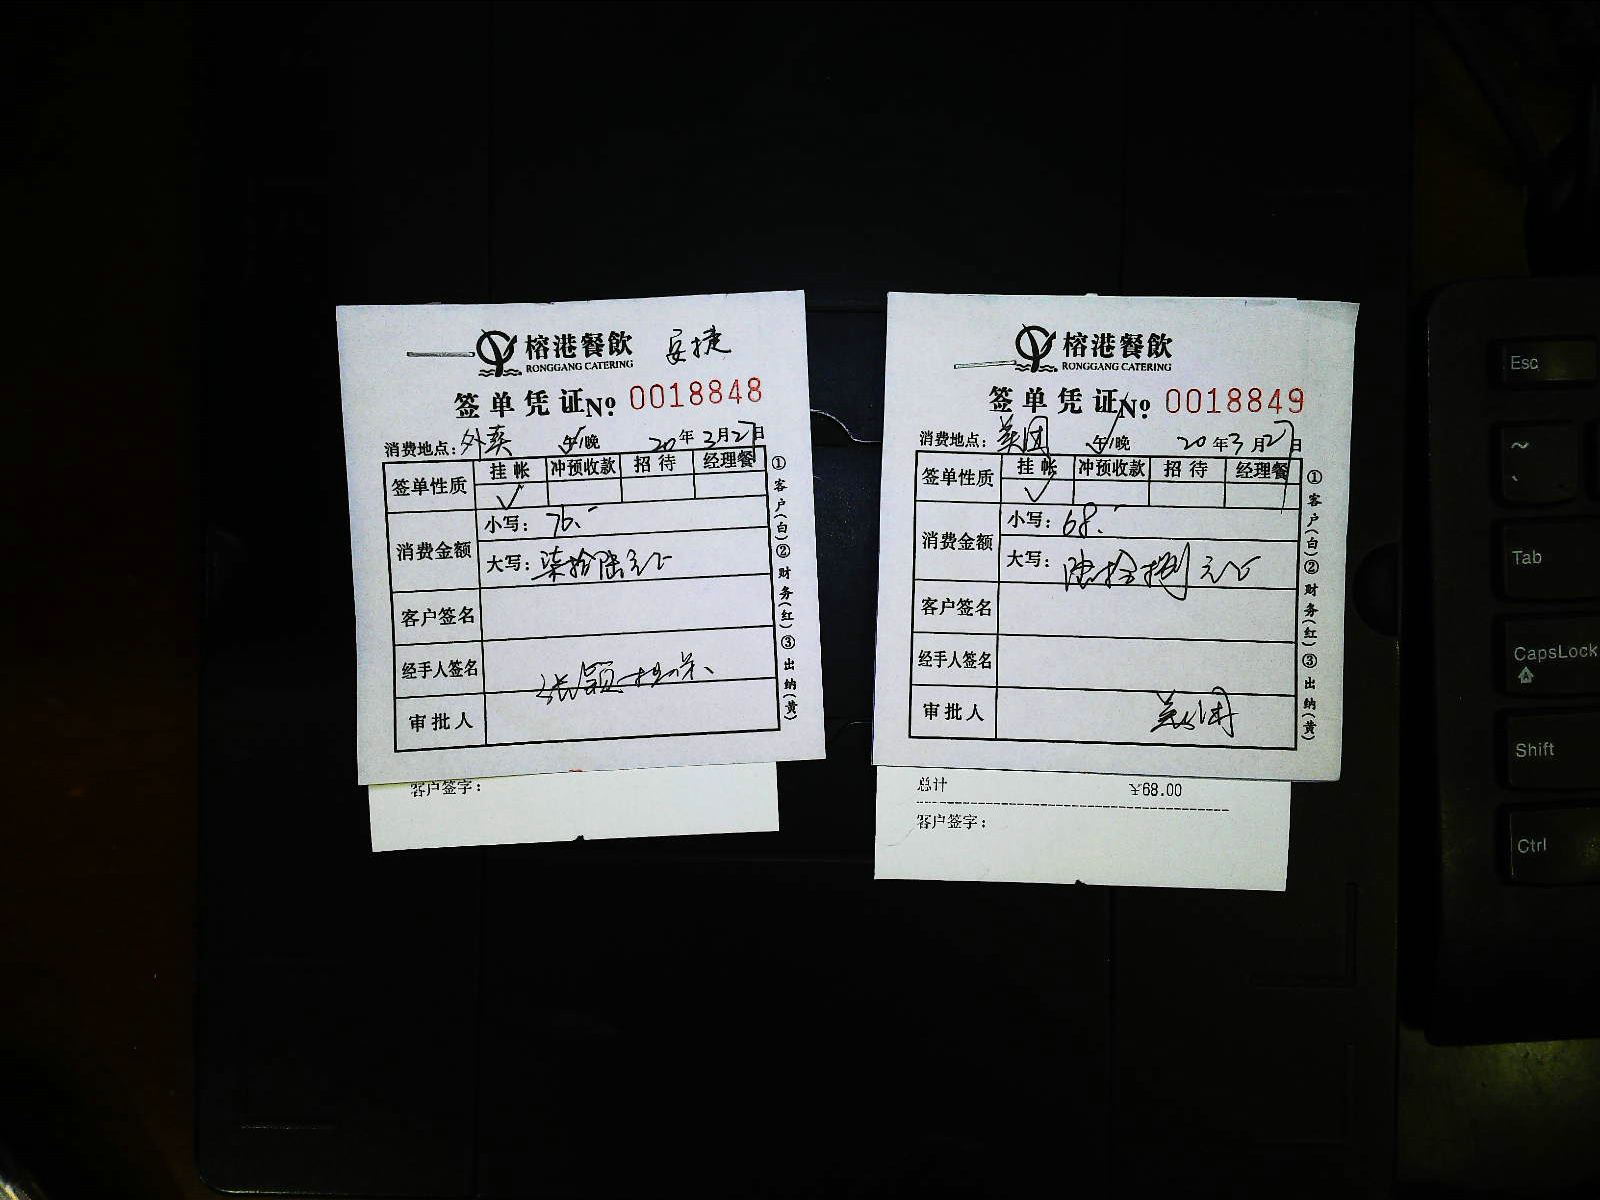 榕港餐飲 安捷
RONGGANG CATERING
签单凭证 No: 0018848
消费地点: 外卖 午/晚 20年3月27日
签单性质 挂帐 冲预收款 招待 经理餐
✓
消费金额 小写: 76.-
大写: 柒拾陆元正
客户签名
经手人签名
审批人
①客户(白)②财务(红)③出纳(黄)
客户签字:
榕港餐飲
RONGGANG CATERING
签单凭证 No: 0018849
消费地点: 美团 午/晚 20年3月27日
签单性质 挂帐 冲预收款 招待 经理餐
✓
消费金额 小写: 68.-
大写: 陆拾捌元正
客户签名
经手人签名
审批人
①客户(白)②财务(红)③出纳(黄)
总计 ¥68.00
客户签字:
Esc
~
`
Tab
CapsLock
Shift
Ctrl